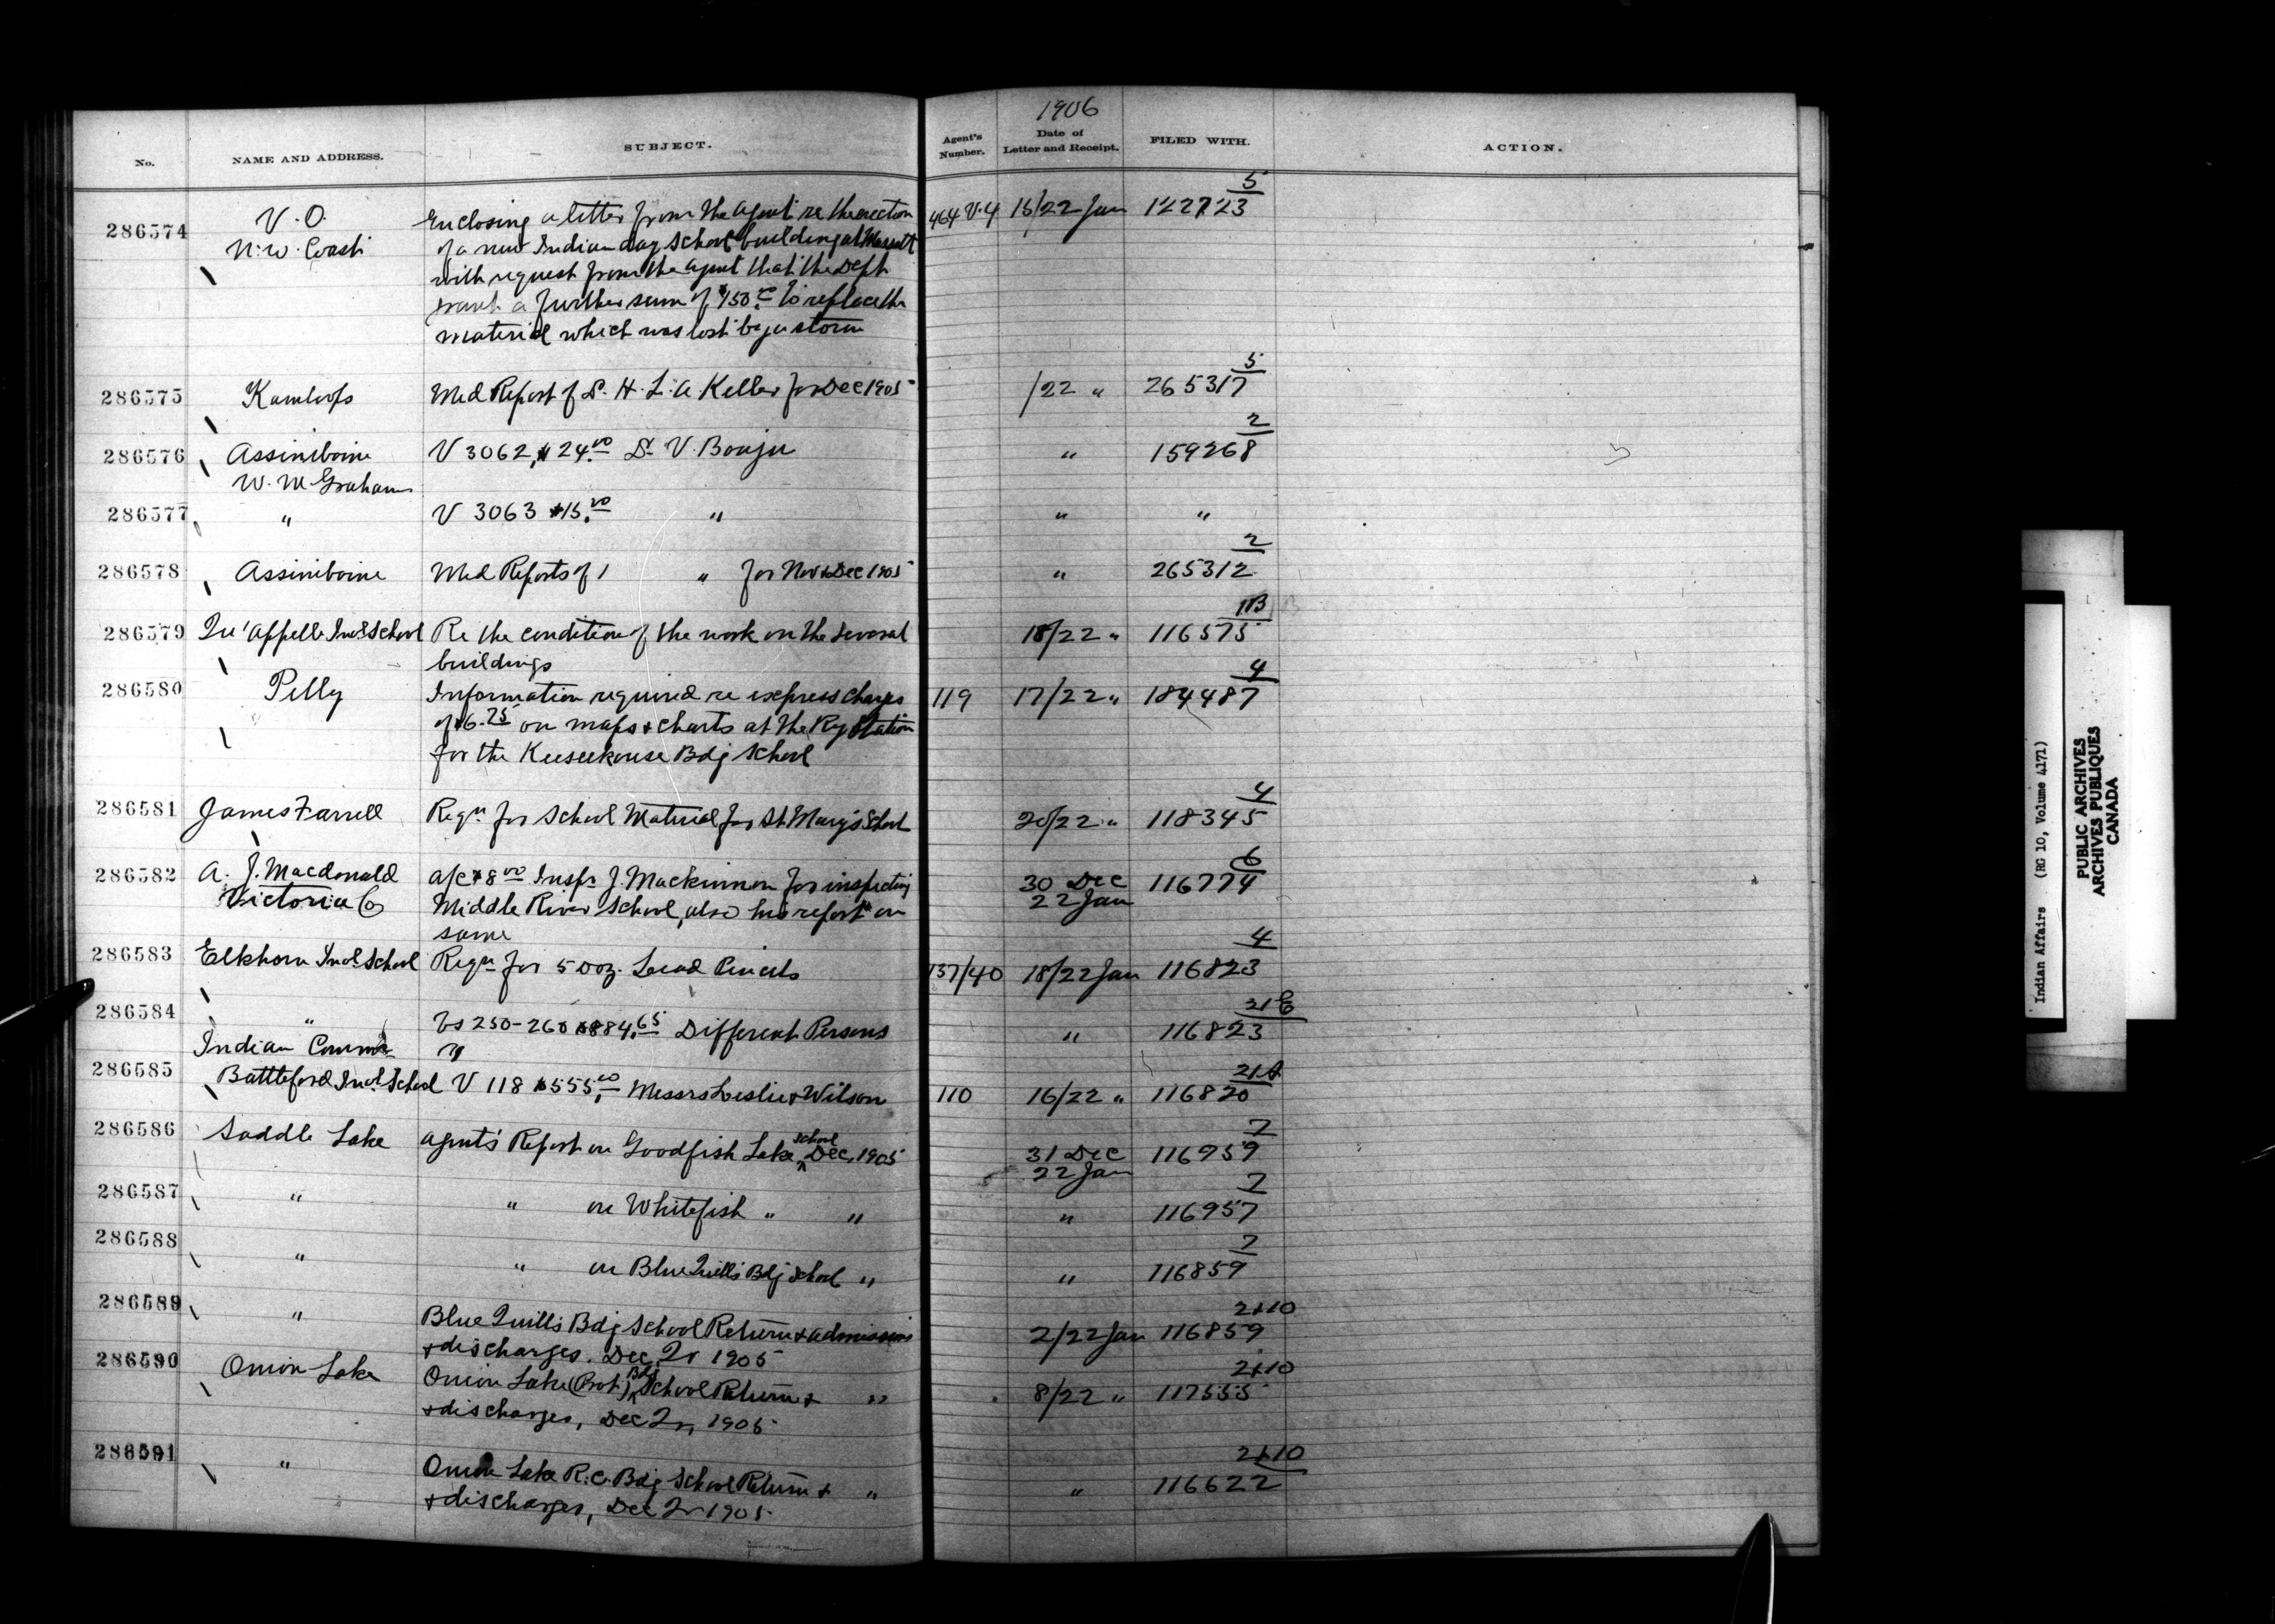 1906
No. NAME AND ADDRESS. SUBJECT. Agent's Number. Date of Letter and Receipt. FILED WITH. ACTION.
5
286574 V.O. Enclosing a letter from the Agent re the erection 464 V.4 16/22 Jan 122723
N.W. Coast of a new Indian day School building at Massett
with request from the Agent that the Dept
grant a further sum of $150.00 to replace the
material which was lost by a storm
5
286575 Kamloops Med Report of Dr. H. L. A. Keller for Dec 1905 /22 " 265317
2
286576 Assiniboine V 3062, $24.00 Dr V. Bouju " 159268
W. M. Graham
286577 " V 3063 $15.00 " " "
2
286578 Assiniboine Med Reports of " for Nov & Dec 1905 " 265312
11B
286579 Qu'Appelle Indl School Re the condition of the work on the several 18/22 " 116575
buildings
4
286580 Pelly Information required re express charges 119 17/22 " 184487
of $6.75 on maps & charts at the Ry Station
for the Keeseekouse Bdg School
4
286581 James Farrell Reqn for School Material for St. Mary's School 20/22 " 118345
6
286582 A. J. Macdonald a/c $8.00 Inspr J. Mackinnon for inspecting 30 Dec 116774
Victoria Co Middle River School, also his report on 22 Jan
same
4
286583 Elkhorn Indl School Reqn for 5 Doz. Lead Pencils 137/40 18/22 Jan 116823
21E
286584 " Vs 250-260 $884.65 Different Persons " 116823
Indian Commr "
21A
286585 Battleford Indl School V 118 $555.00 Messrs Leslie & Wilson 110 16/22 " 116820
7
286586 Saddle Lake Agent's Report on Goodfish Lake School Dec, 1905 31 Dec 116959
22 Jan
7
286587 " " on Whitefish " " " 116957
7
286588 " " on Blue Quill's Bdg School " " 116859
2+10
286589 " Blue Quill's Bdg School Return & admissions 2/22 Jan 116859
& discharges. Dec Qr 1905
2+10
286590 Onion Lake Onion Lake (Prot.) Bdg School Return & " 8/22 " 117555
& discharges, Dec Qr, 1905
2+10
286591 " Onion Lake R.C. Bdg School Return & " " 116622
& discharges, Dec Qr 1905
Indian Affairs (RG 10, Volume 4171)
PUBLIC ARCHIVES
ARCHIVES PUBLIQUES
CANADA